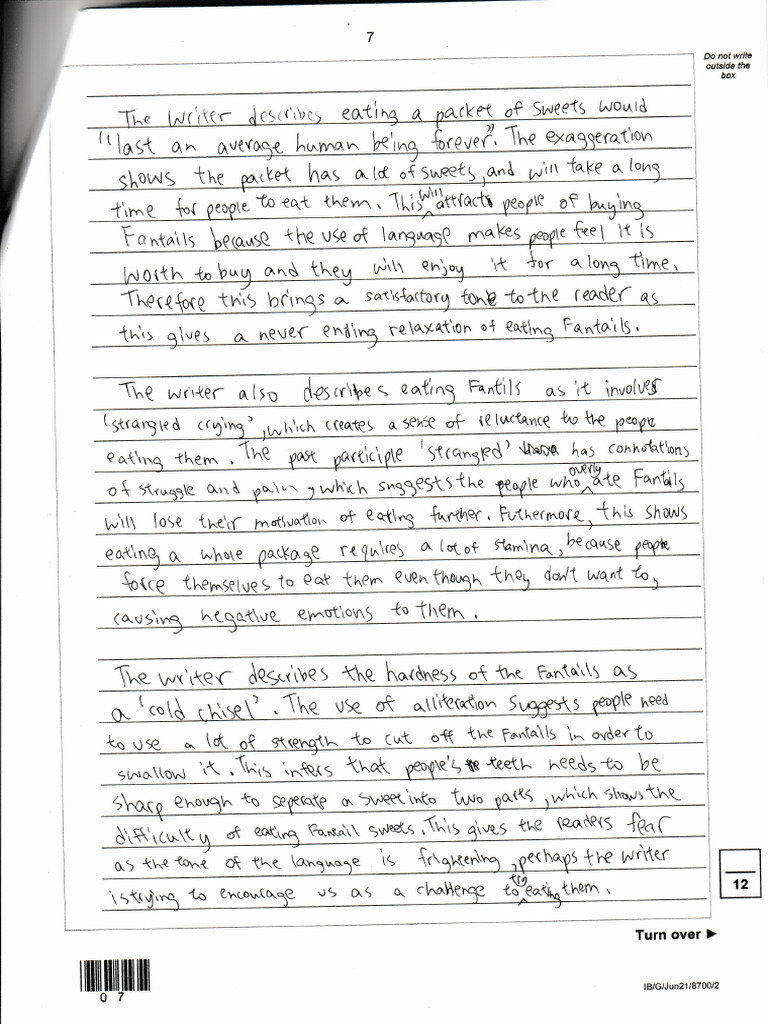 7
Do not write
outside the
box
The writer describes eating a packet of sweets would
"last an average human being forever". The exaggeration
shows the packet has a lot of sweets, and will take a long
time for people to eat them. This will attracts people of buying
Fantails because the use of language makes people feel it is
worth to buy and they will enjoy it for a long time.
Therefore this brings a satisfactory tone to the reader as
this gives a never ending relaxation of eating Fantails.
The writer also describes eating Fantils as it involves
'strangled crying', which creates a sense of reluctance to the people
eating them. The past participle 'strangled' has connotations
of struggle and pain, which suggests the people who overly ate Fantils
will lose their motivation of eating further. Futhermore, this shows
eating a whole package requires a lot of stamina, because people
force themselves to eat them even though they don't want to,
causing negative emotions to them.
The writer describes the hardness of the Fantails as
a 'cold chisel'. The use of alliteration suggests people need
to use a lot of strength to cut off the Fantails in order to
swallow it. This infers that people's teeth needs to be
sharp enough to seperate a sweet into two parts, which shows the
difficulty of eating Fantail sweets. This gives the readers fear
as the tone of the language is frightening, perhaps the writer
is trying to encourage us as a challenge to try eating them.
12
Turn over ►
0 7
IB/G/Jun21/8700/2